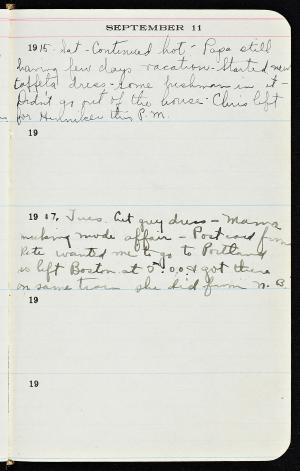 SEPTEMBER 11
1915 Sat - Continued hot - Papa still
having few days vacation - Started new
taffeta dress - some freshman in it -
Didn't go out of the house - Chris left
for Henniker this P.M.
19
1917, Tues. Cut grey dress - Mama
making mode affair - Postcard from
wanted me to go to Portland
so left Boston at 5:00 & got there
on same train she did from N.B.
19
19